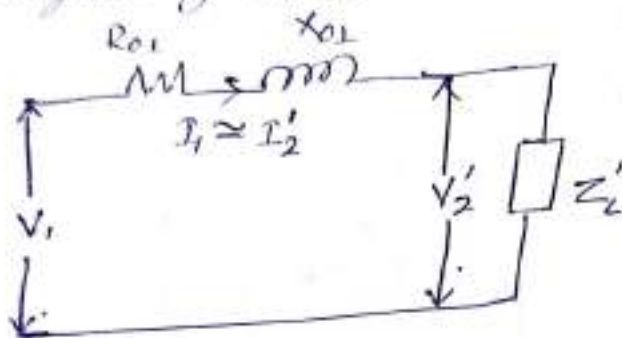 R₀₁ X₀₁
I₁ ≃ I₂'
V₁ V₂' Z_L'